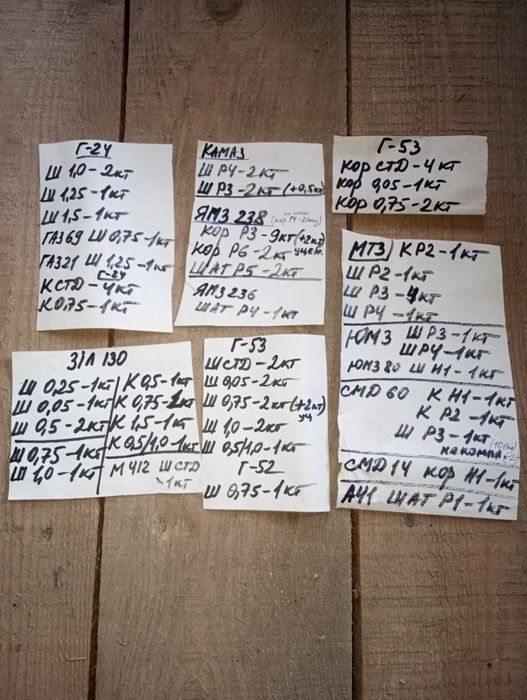 Г-24
Ш 1,0-2кт
Ш 1,25-1кт
Ш 1,5-1кт
ГАЗ69 Ш 0,75-1кт
ГАЗ21 Ш 1,25-1кт
Г-24
К СТД-4кт
К 0,75-1кт
КАМАЗ
Ш Р4-2кт
Ш Р3-2кт (+0,5кт)
ЯМЗ 238
Кор Р3-9кт (+2кт
Кор Р6-2кт уцен.
ШАТ Р5-2кт
ЯМЗ 236
ШАТ Р4-1кт
Г-53
Кор СТД-4кт
Кор 0,05-1кт
Кор 0,75-2кт
МТЗ КР2-1кт
Ш Р2-1кт
Ш Р3-4кт
Ш Р4-1кт
ЮМЗ Ш Р3-1кт
Ш Р4-1кт
ЮМЗ 80 Ш Н1-1кт
СМД 60 К Н1-1кт
К Р2-1кт
Ш Р3-1кт
некомпл
СМД 14 кор Н1-1кт
А41 ШАТ Р1-1кт
ЗИЛ 130
Ш 0,25-1кт К 0,5-1кт
Ш 0,05-1кт К 0,75-1кт
Ш 0,5-2кт К 1,5-1кт
Ш 0,75-1кт К 0,5/1,0-1кт
Ш 1,0-1кт М412 Ш СТД
1кт
Г-53
Ш СТД-2кт
Ш 0,05-2кт
Ш 0,75-2кт (+2кт)
уц
Ш 1,0-2кт
Ш 0,5/1,0-1кт
Г-52
Ш 0,75-1кт